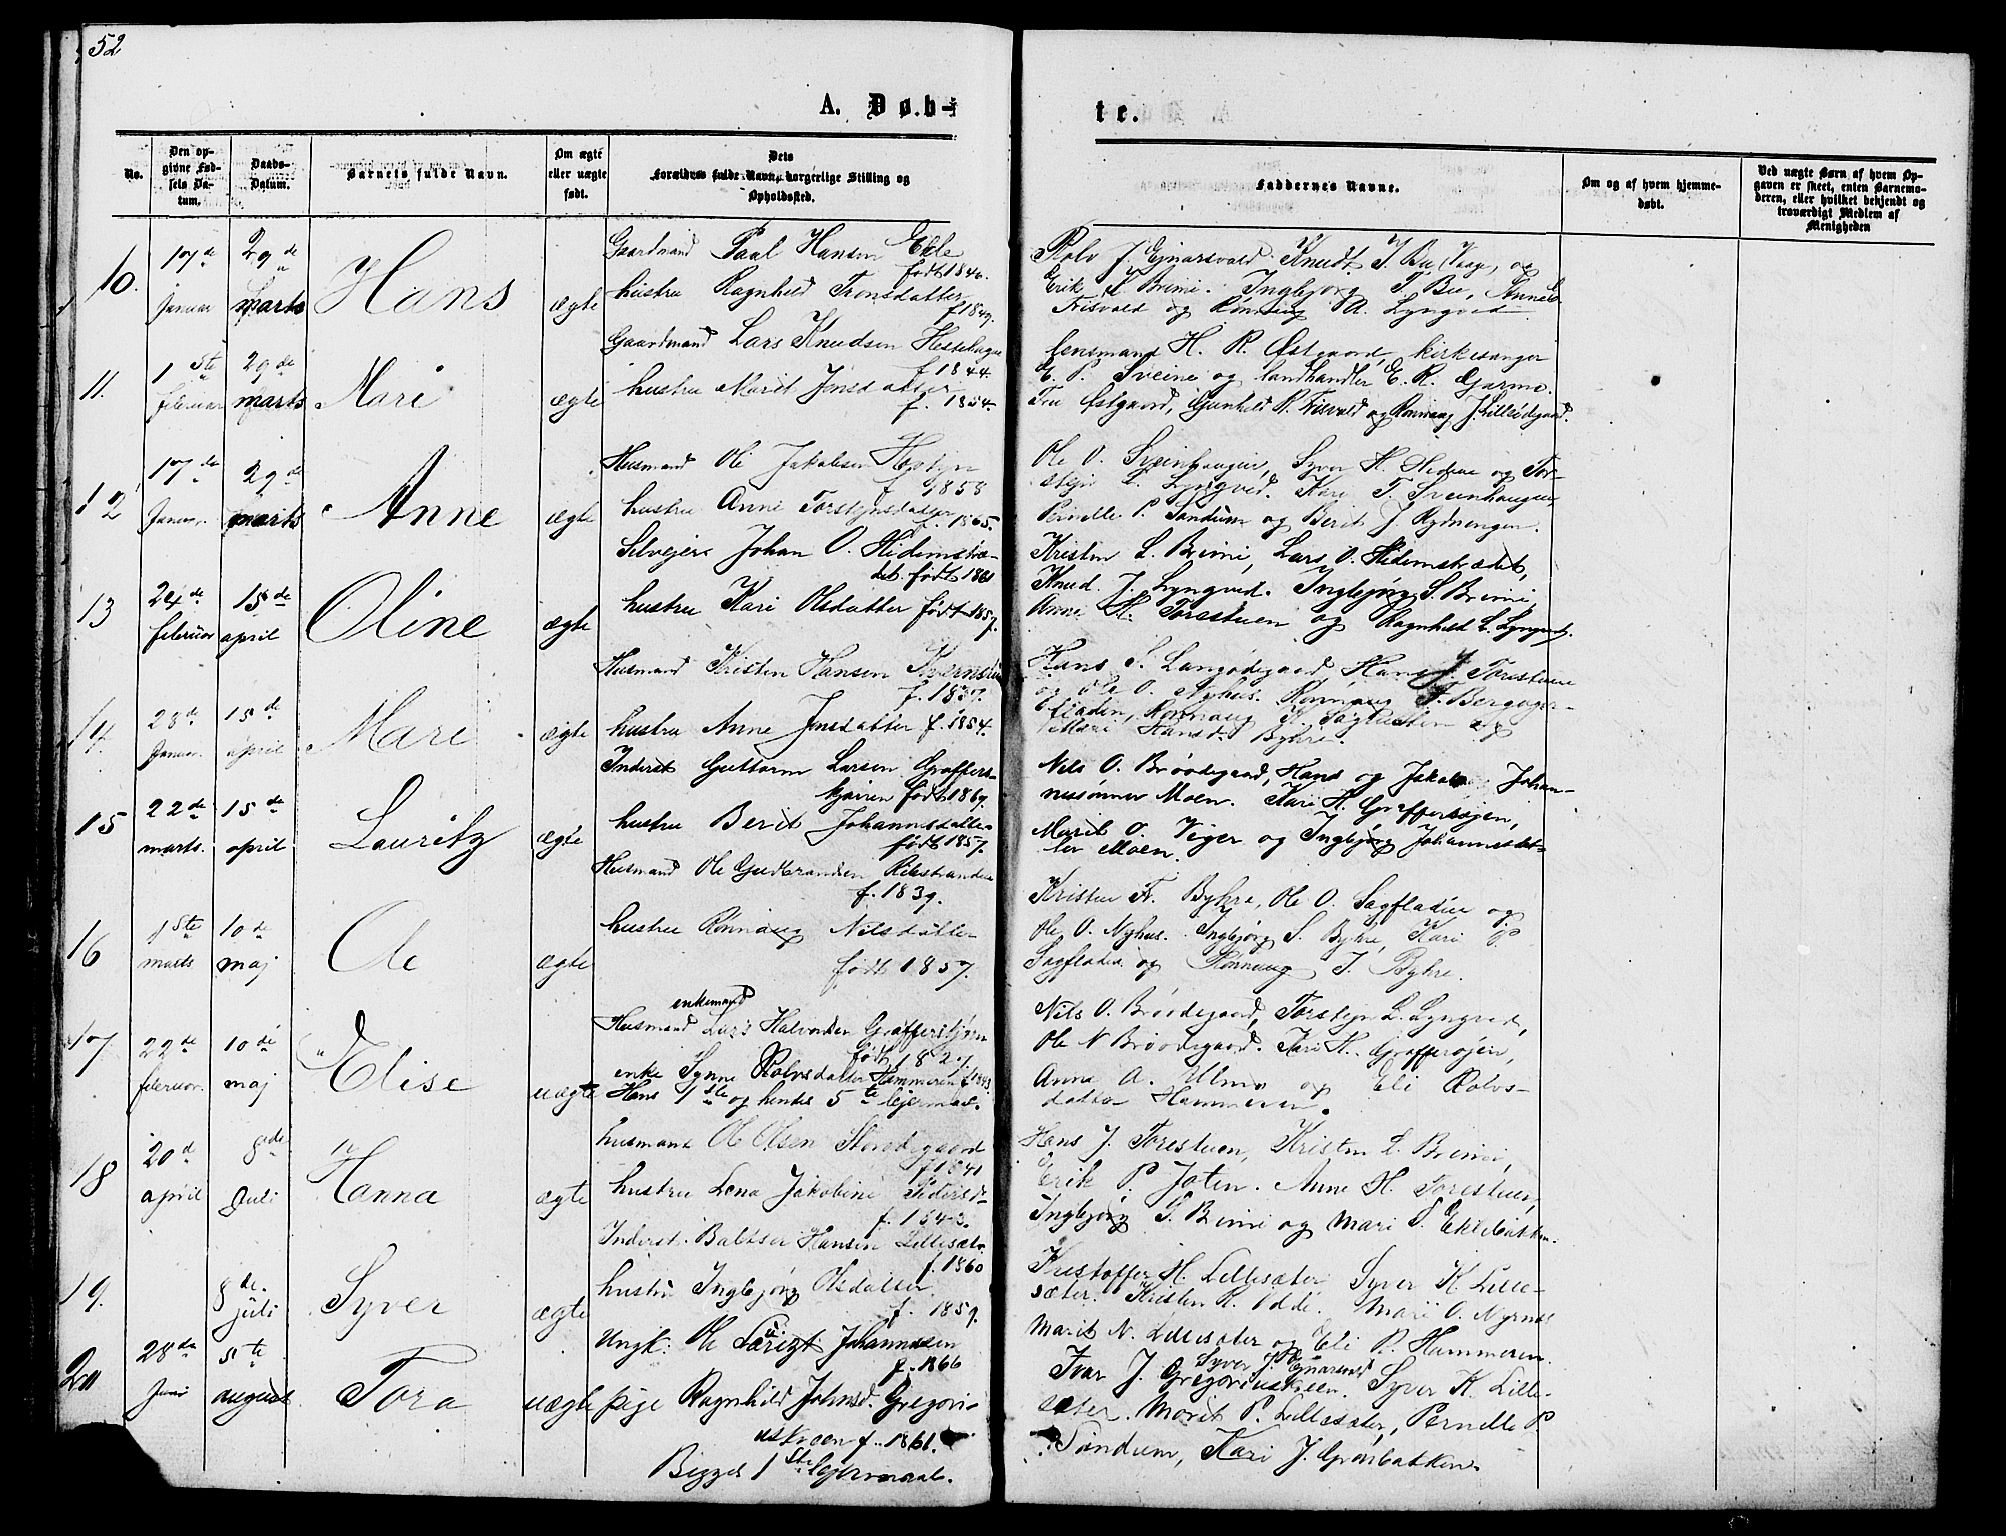 52
A. Døb-
te.
No.
Den op-
givne Fød-
sels Da-
tum.
Daabs-
Datum.
Barnets fulde Navn.
Om ægte
eller uægte
født.
Dets
Forældres fulde Navn, borgerlige Stilling og
Opholdssted.
Faddernes Navne.
Om og af hvem hjemme-
døbt.
Ved uægte Børn af hvem Op-
gaven er skeet, enten Barnemo-
deren, eller hvilket bekjendt og
troværdigt Medlem af
Menigheden
10.
17de
Januar
29de
marts
Hans
ægte
Gaardmand Paal Hansen Ekle
født 1846.
hustru Ragnhild Tronsdatter
f. 1849.
Rolv J. Ejnarsvald Knudt J. Bu (Vaage) og
Erik L. Brimi. Ingebjørg T. Bu, Anne
Frisvold og Rønnaug R. Lyngved
11.
1ste
februar
29de
marts
Mari
ægte
Gaardmand Lars Knudsen Hestehagen
f. 1844.
hustru Marit Jonsdatter
f. 1854.
lensmand H. R. Østgaard, kirkesanger
E. P. Sveine og landhandler E. R. Garmo.
Fru Østgaard, Gunhild R. Frisvold og Rønnaug J. Lilleødegaard.
12
17de
Januar
29de
marts
Anne
ægte
Husmand Ole Jakobsen
f. 1858
hustru Anne Torstejnsdatter
f. 1865.
Ole O. Sveinhaugen, Syver H. og Tor-
stejn L. Lyngved. Kari T. Sveinhaugen,
Pernille P. Sandum og Berit J. Rydningen.
13
24de
februar
15de
april
Oline
ægte
Selvejer Johan O. Hidemstræ-
det. født 1861
hustru Kari Olsdatter født 1857.
Kristen L. Brimi, Lars O. Hidemstrædet,
Knud J. Lyngved. Ingebjørg S. Brimi,
Anne H. Torestuen og Ragnhild L. Lyngved.
14.
28de
Januar.
15de
april
Mari
ægte
Husmand Kristen Hansen
f. 1839.
hustru Anne Jonsdatter f. 1854.
Hans S. Langødegaard, Hans J. Torestuen
og Ole O. Nyhus. Rønnaug
Rønnaug og
Mari Hansd. Byhre.
15
22de
marts.
15de
april
Lauritz
ægte
Inderst Guttorm Larsen Graffers-
kjæren født 1869.
hustru Berit Johannesdatter
født 1857.
Nils O. Brøødegaard, Hans og Jakob Johan-
nessønner Moen. Kari H. Graffersøjen,
Marit O. Viger og Ingebjørg Johannesdat-
ter Moen.
16
1ste
marts
10de
maj
Ole
ægte
Husmand Ole Gudbrandsen
f. 1839.
hustru Rønnaug Nilsdatter
født 1857.
Kristen Byhre, Ole O. Sagfladen og
Ole O. Nyhus. Ingebjørg S. Byhre, Kari P.
Sagfladen og Rønnaug J. Byhre.
17
22de
februar.
10de
maj
Elise
uægte
enkemand
Husmand Lars Halvorsen
født 1827
enke Synne Rolvsdatter Hammeren f. 1843
Hans 1ste og hendes 5te lejermaal.
Nils O. Brøødegaard, Torstejn L. Lyngved,
Ole N. Brøødegaard. Kari H. Graffersøjen,
Anne A. Ulmo og Eli Rolvs-
datter Hammeren.
18
20de
april
8de
Juli
Hanna
ægte
husmand Ole Olsen Storødegaard
f. 1841
hustru Lena Jakobine Pedersd.
f. 1843.
Hans J. Torestuen, Kristen L. Brimi,
Erik P. Joten. Anne H. Torestuen,
Ingebjørg S. Brimi og Mari T. Eklebakken.
19.
8de
juli
Syver
ægte
Inderst. Baltser Hansen Lillesæter
f. 1860
hustru Ingebjørg Olsdatter.
f. 1859.
Kristoffer H. Lillesæter Syver K. Lille-
sæter. Kristen R. Odde. Mari O. Nyrnes
Marit N. Lillesæter og Eli R. Hammeren.
20
28de
Juni
5te
august
Tora
uægte
Ungk: Ole Lauritz Johannessen
f. 1866
pige Ragnhild Johnsd. Gregori-
uskveen f. 1861.
Begges 1ste lejermaal.
Syver J. Ejnarsvold
Ivar J. Gregoriuskveen. Syver K. Lille-
sæter. Marit P. Lillesæter, Pernille P.
Sandum, Kari J. Grønbakken.